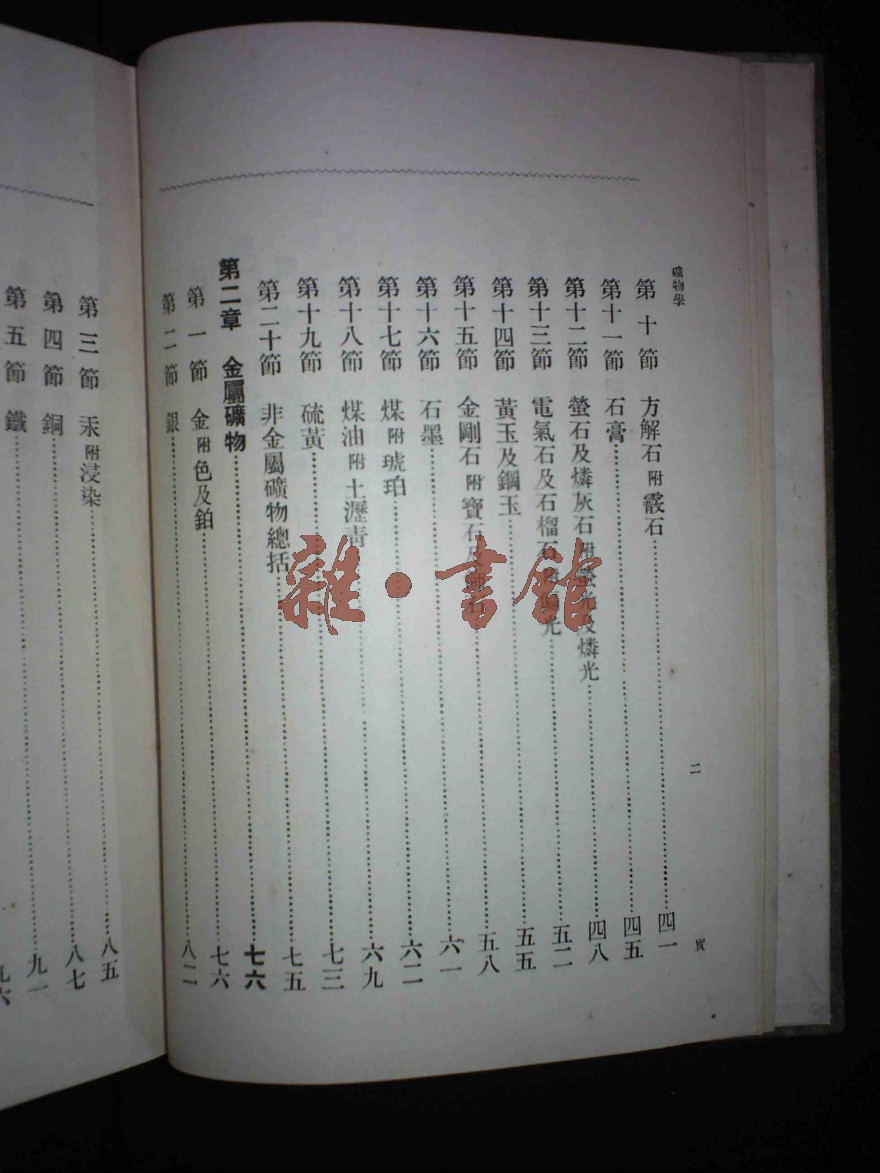 礦物學
第十節 方解石附霰石 四一
第十一節 石膏 四五
第十二節 螢石及燐灰石附螢光及燐光 四八
第十三節 電氣石及石榴石 光 五二
第十四節 黃玉及鋼玉 五五
第十五節 金剛石附寶石及 五八
第十六節 石墨 六一
第十七節 煤附琥珀 六二
第十八節 煤油附土瀝青 六九
第十九節 硫黃 七三
第二十節 非金屬礦物總括 七五
第二章 金屬礦物 七六
第一節 金附色及鉑 七六
第二節 銀 八二
二
第三節 汞附浸染 八五
第四節 銅 八七
第五節 鐵 九一
九六
雜·書館